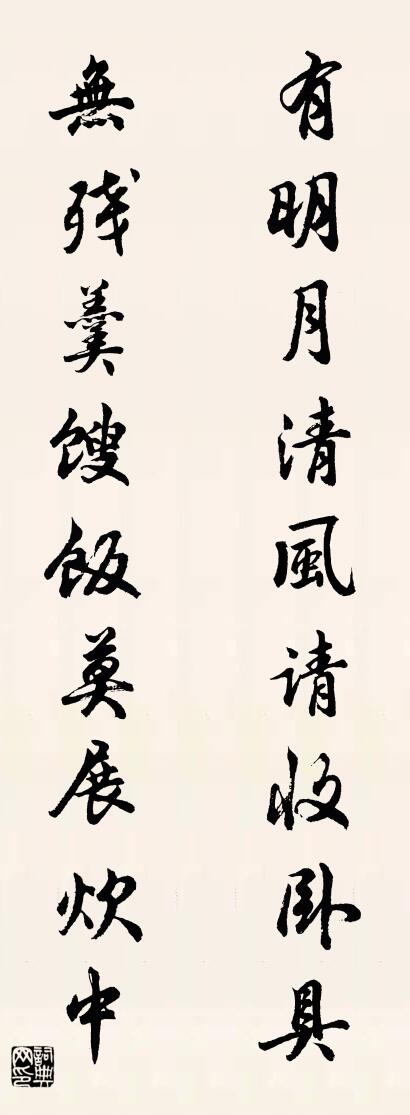 有明月清風请收卧具
無残羹餿飯莫展炊巾
詞典网印